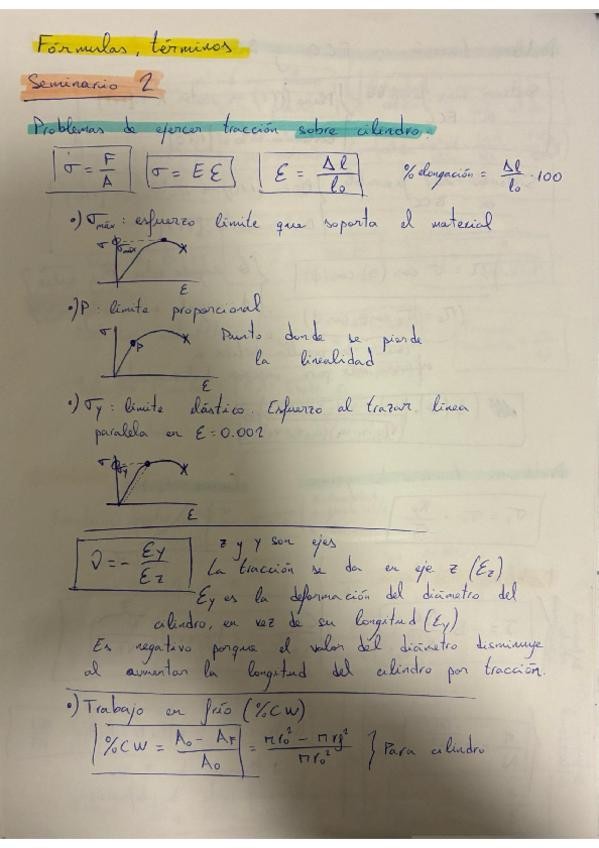 Fórmulas, términos
Seminario 2
Problemas de ejercer tracción sobre cilindro.
σ = F/A   σ = E ε   ε = Δl/l₀   % elongación = Δl/l₀ · 100
•) σmáx : esfuerzo límite que soporta el material
σ σmáx ε
•) P : límite proporcional
σ P ε Punto donde se pierde
la linealidad
•) σy : límite elástico. Esfuerzo al trazar línea
paralela en ε = 0.002
σ σy ε
ν = - εy/εz   z y y son ejes
La tracción se da en eje z (εz)
εy es la deformación del diámetro del
cilindro, en vez de su longitud (εy)
Es negativo porque el valor del diámetro disminuye
al aumentar la longitud del cilindro por tracción.
•) Trabajo en frío (%CW)
%CW = A₀ - AF / A₀ = πr₀² - πrf² / πr₀² } Para cilindro